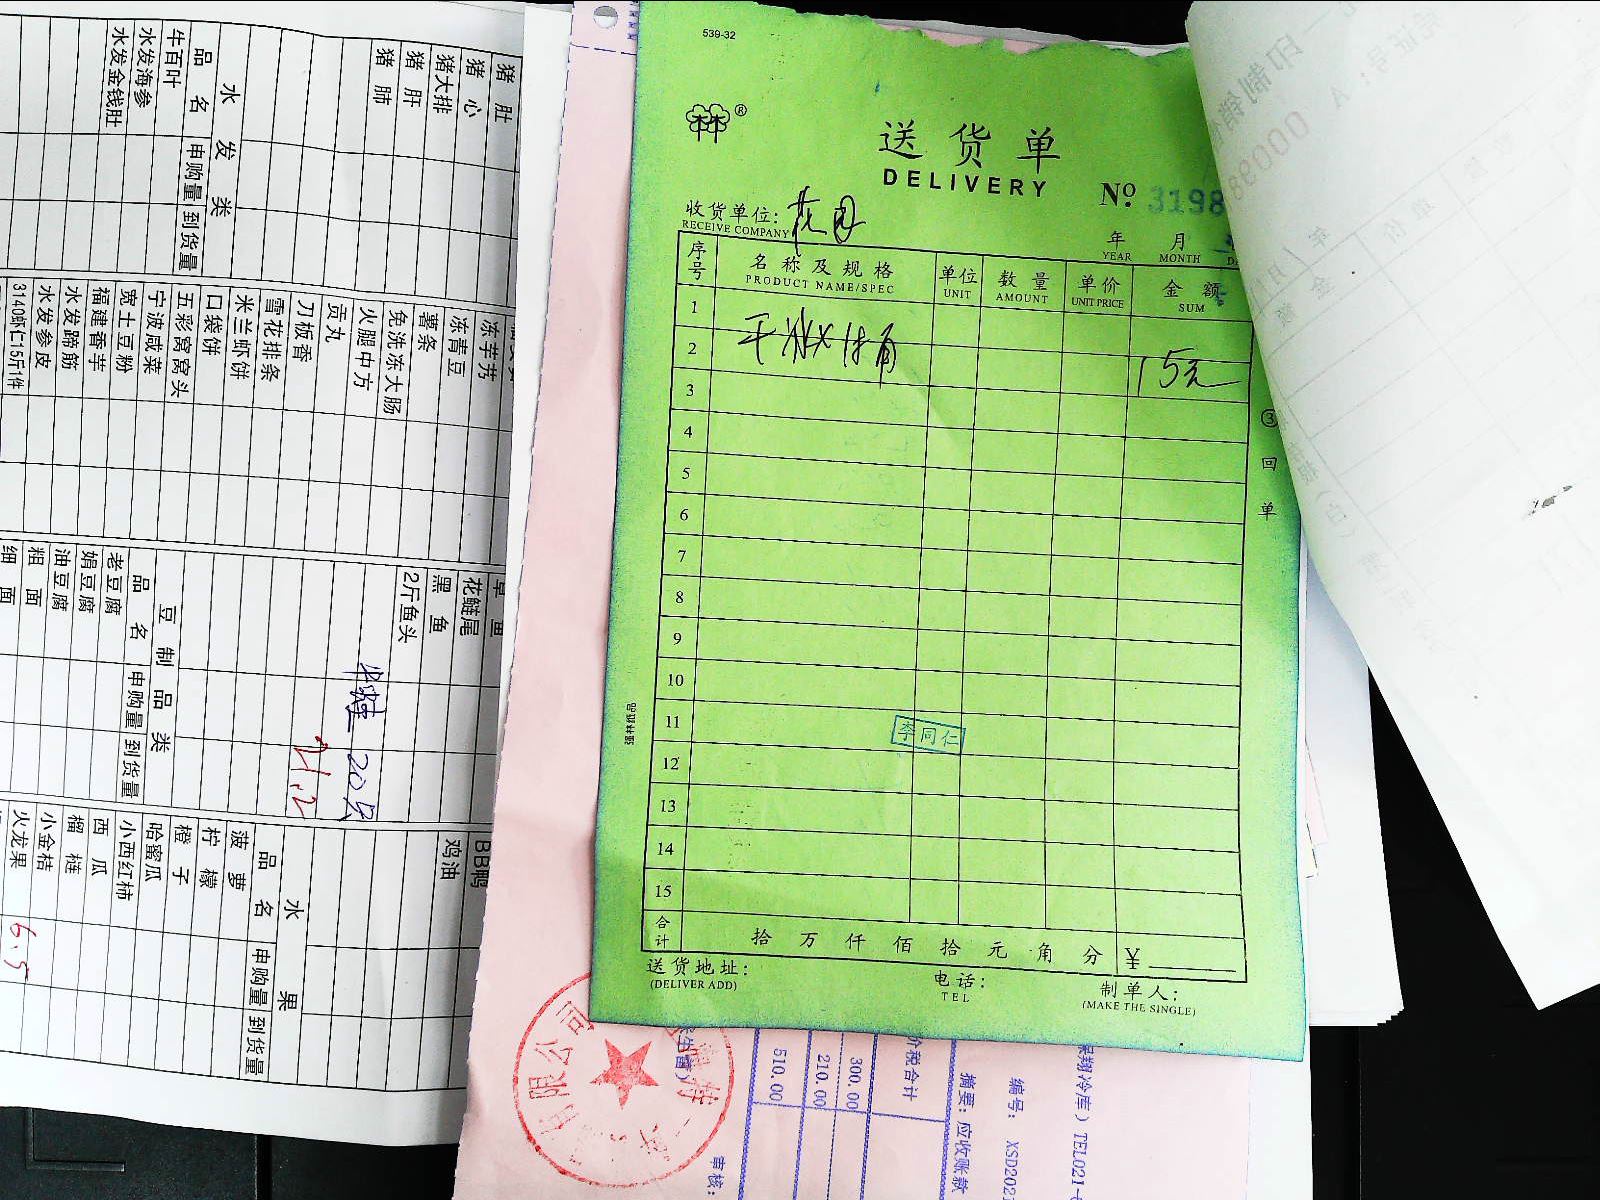 539-32
林林®
送货单
DELIVERY
No. 3198
收货单位: 花园
RECEIVE COMPANY
年 月
YEAR MONTH
序号 名称及规格 单位 数量 单价 金额
PRODUCT NAME/SPEC UNIT AMOUNT UNIT PRICE SUM
1
2
15元
3
4
5
6
7
8
9
10
11
李同仁
12
13
14
15
合计 拾 万 仟 佰 拾 元 角 分 ¥
送货地址: 电话: 制单人:
(DELIVER ADD) TEL (MAKE THE SINGLE)
③回单
强林纸品
猪肚
猪心
猪大排
猪肝
猪肺
水发类
品名 申购量 到货量
牛百叶
水发海参
水发金钱肚
冻芋艿
冻青豆
薯条
免洗冻大肠
火腿中方
贡丸
刀板香
雪花排条
米兰虾饼
口袋饼
五彩窝窝头
宁波咸菜
宽土豆粉
福建香芋
水发蹄筋
水发参皮
3140虾仁15斤1件
草鱼
花鲢尾
黑鱼
2斤鱼头
20只
21.2
豆制品类
品名 申购量 到货量
老豆腐
娟豆腐
油豆腐
粗面
细面
BB鸭
鸡油
水果
品名 申购量 到货量
菠萝
柠檬
橙子
哈蜜瓜
小西红柿
西瓜
榴梿
小金桔
火龙果 6.5
冷库）TEL021-
编号: XSD202
摘要: 应收账款
价税合计
300.00
210.00
510.00
审核:
限公司